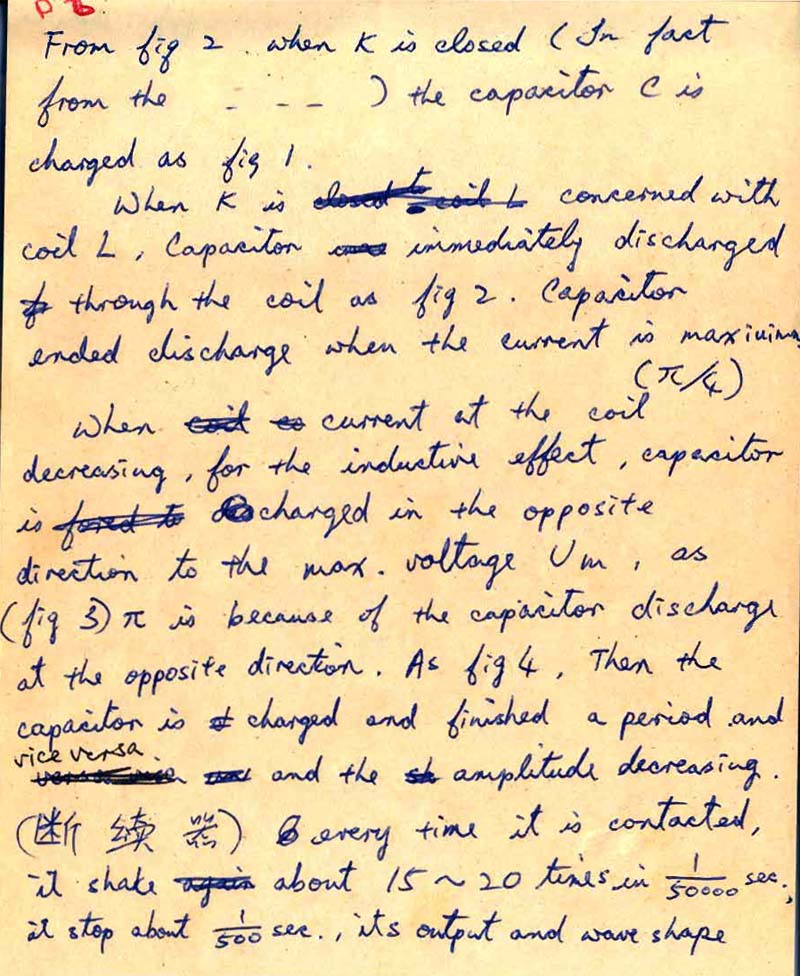 P 6
From fig 2 when K is closed (In fact
from the - - - ) the capacitor C is
charged as fig 1.
When K is closed to coil L concerned with
coil L, Capacitor immediately discharged
through the coil as fig 2. Capacitor
ended discharge when the current is maximum
(π/4)
When coil current at the coil
decreasing, for the inductive effect, capacitor
is forced to charged in the opposite
direction to the max. voltage Um, as
(fig 3) π is because of the capacitor discharge
at the opposite direction. As fig 4, Then the
capacitor is charged and finished a period and
vice versa.
and the amplitude decreasing.
(断续器) every time it is contacted,
it shake again about 15 ~ 20 times in 1/50000 sec.,
it stop about 1/500 sec., its output and wave shape